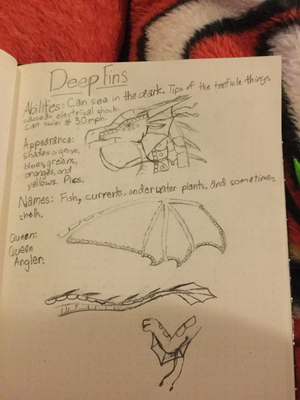 Deep Fins
Abilities: Can see in the dark. Tips of the tenticle things
electrical shock.
Can swim at 30 mph.
Appearance:
shades of grays,
blues, greens,
oranges, and
yellows. Pics.
Names: Fish, currents, underwater plants, and sometimes
shells.
Queen:
Queen
Angler.